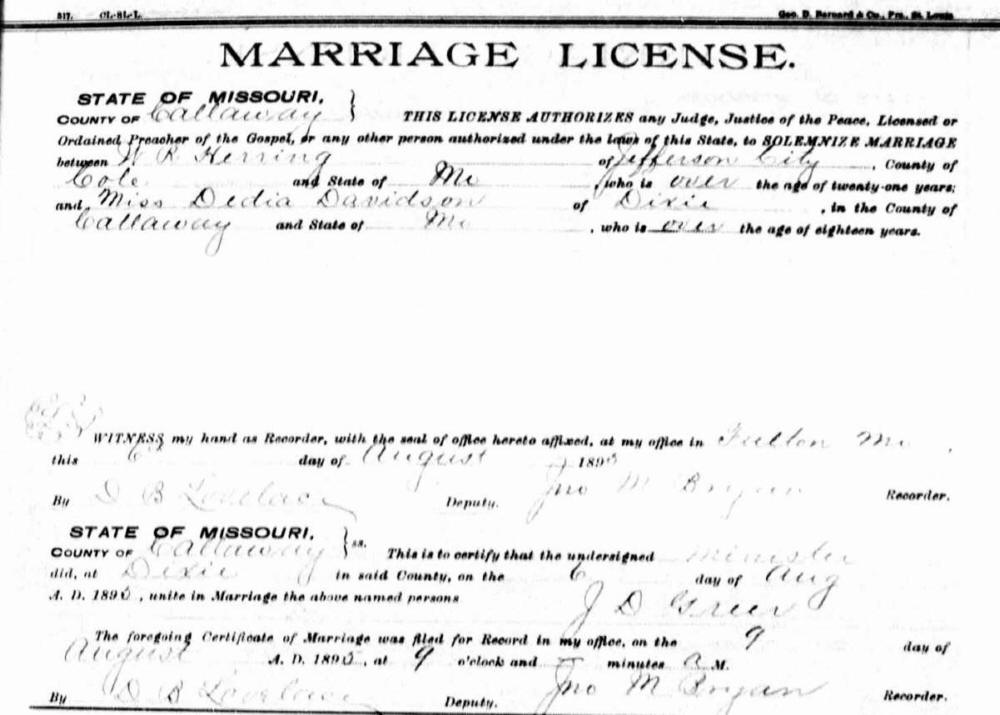 317. CL-8L-L. Geo. D. Barnard & Co., Prs., St. Louis
MARRIAGE LICENSE.
STATE OF MISSOURI, }
COUNTY OF Callaway THIS LICENSE AUTHORIZES any Judge, Justice of the Peace, Licensed or
Ordained Preacher of the Gospel, or any other person authorized under the laws of this State, to SOLEMNIZE MARRIAGE
between W R Herring of Jefferson City, County of
Cole and State of Mo who is over the age of twenty-one years;
and Miss Dedia Davidson of Dixie, in the County of
Callaway and State of Mo, who is over the age of eighteen years.
WITNESS my hand as Recorder, with the seal of office hereto affixed, at my office in Fulton Mo.
this 6th day of August 1895
By D B Lovelace Deputy. Jno M Bryan Recorder.
STATE OF MISSOURI, } ss.
COUNTY OF Callaway This is to certify that the undersigned Minister
did, at Dixie in said County, on the 6 day of Aug
A. D. 1895, unite in Marriage the above named persons
J D Greer
The foregoing Certificate of Marriage was filed for Record in my office, on the 9 day of
August A. D. 1895, at 9 o'clock and — minutes a M.
By D B Lovelace Deputy. Jno M Bryan Recorder.